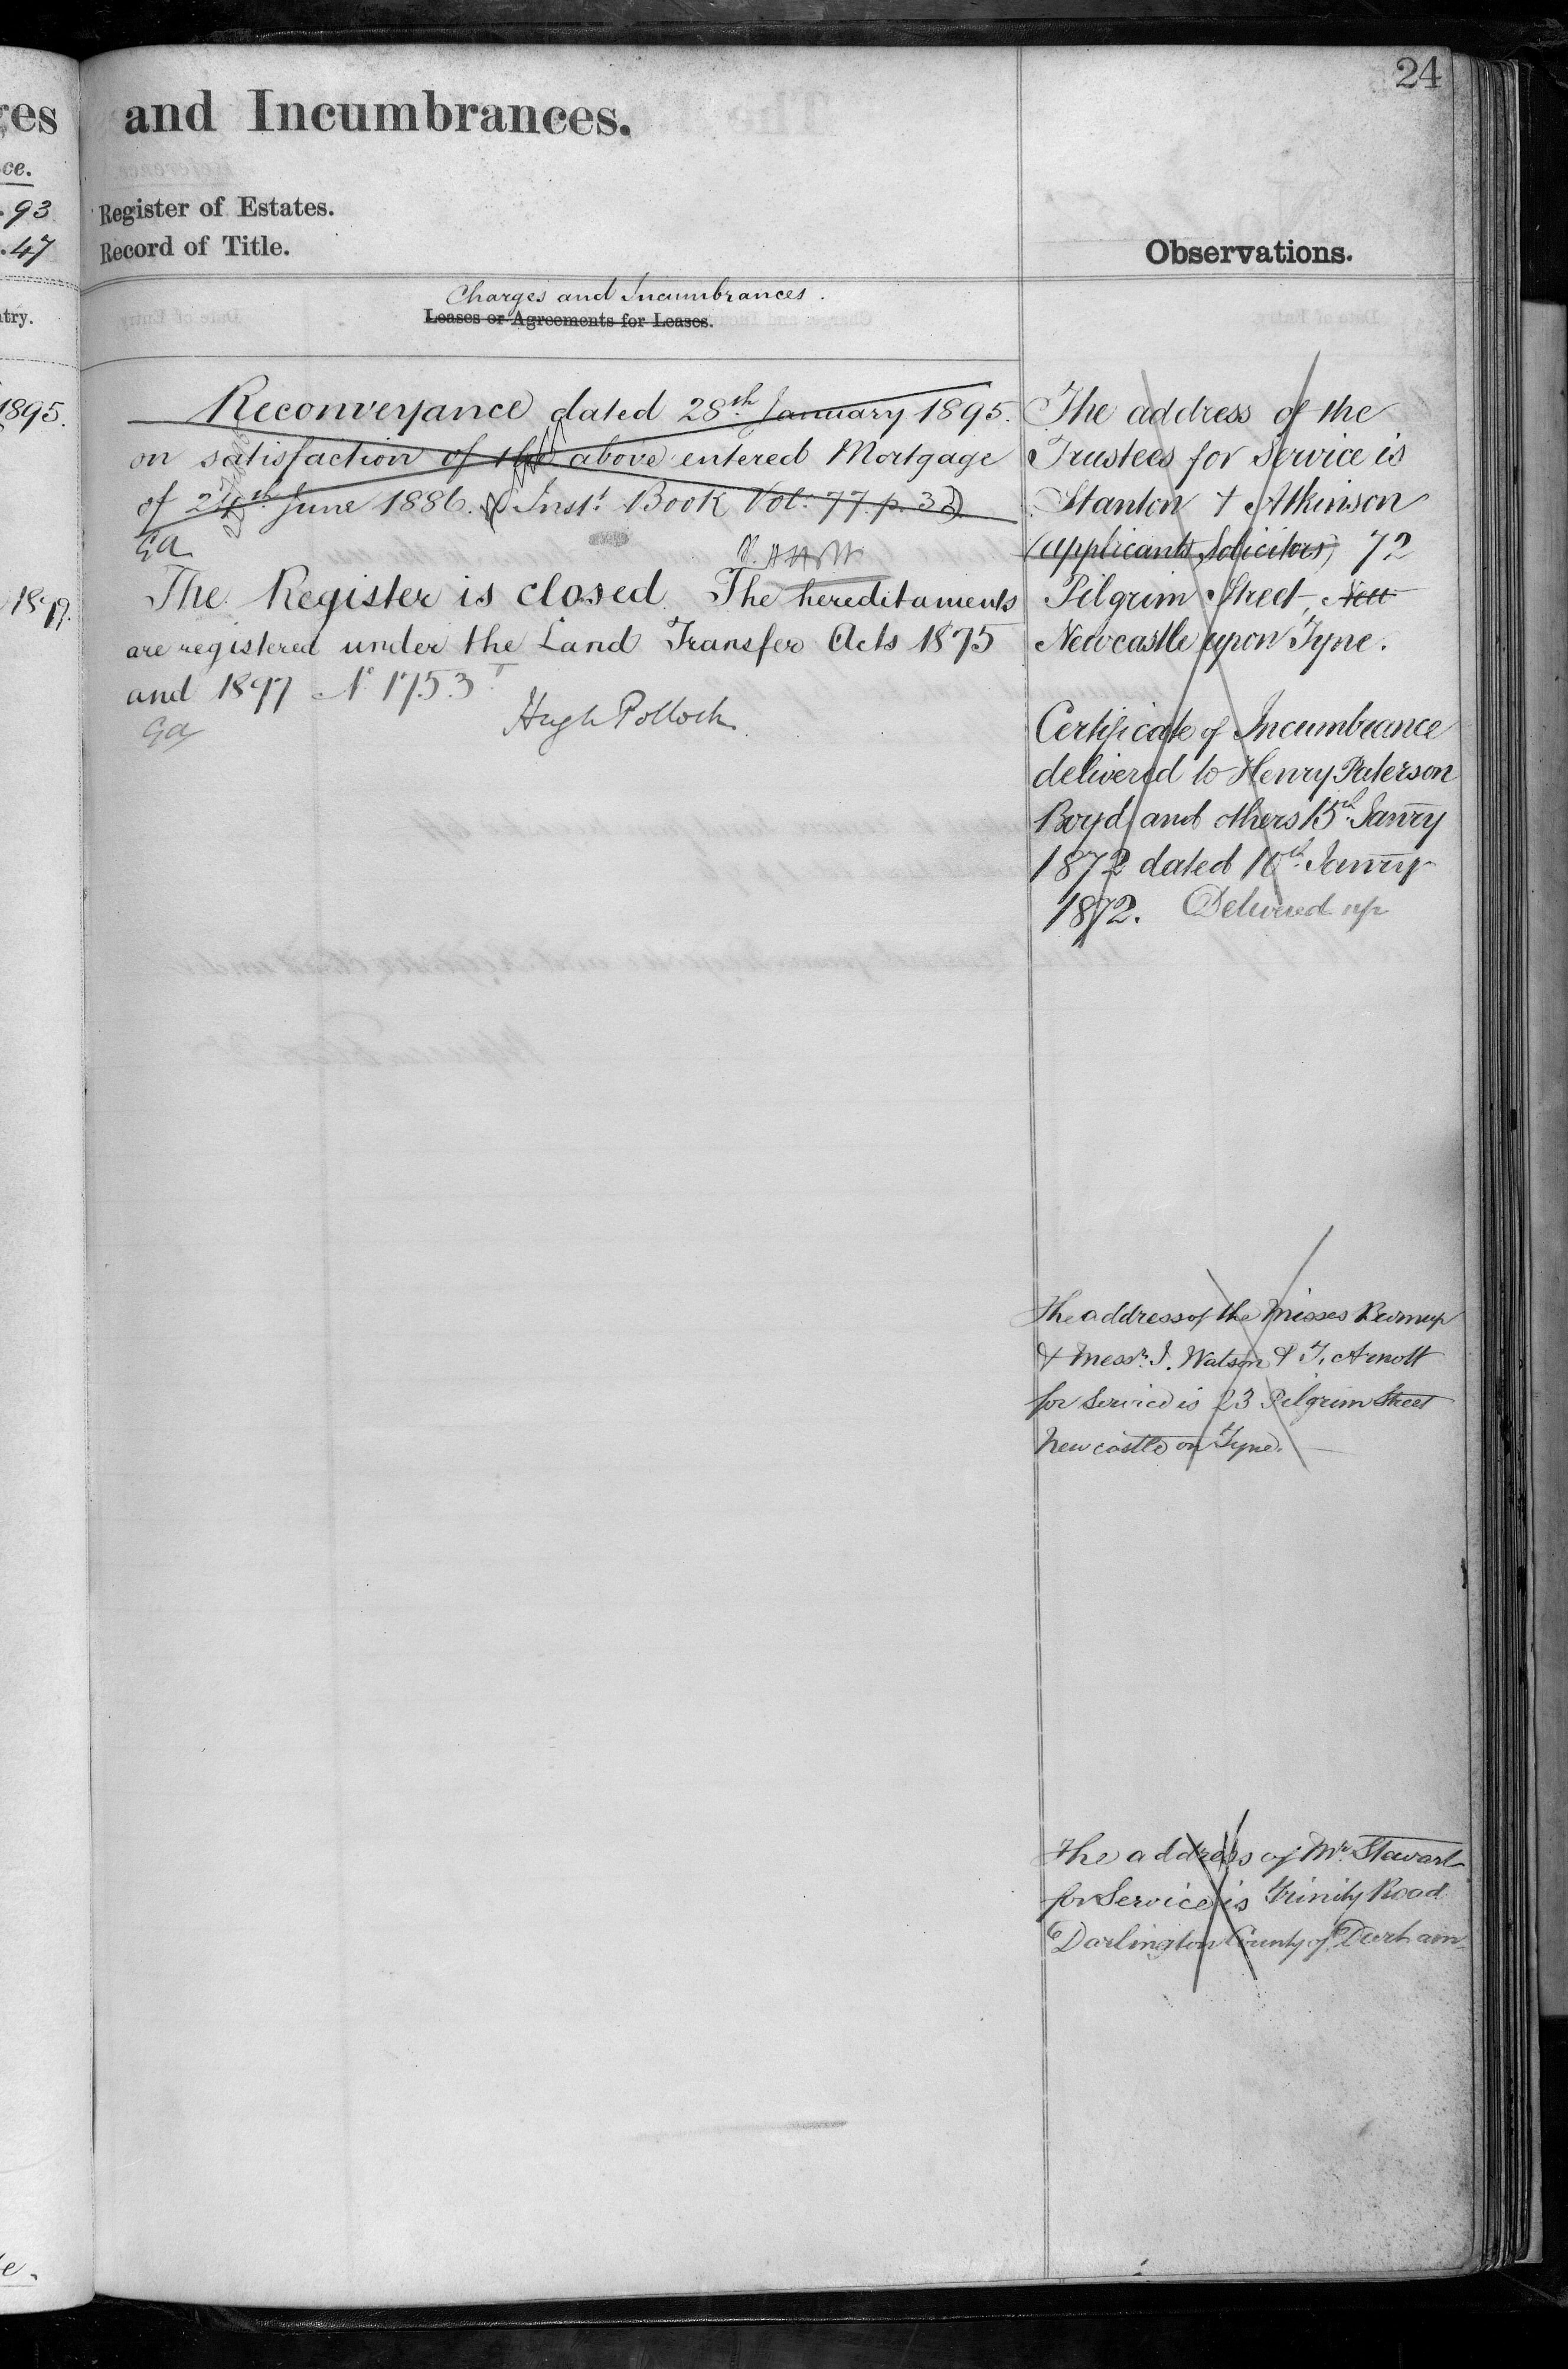 24
ges
and Incumbrances.
ce.
. 93
Register of Estates.
. 47
Record of Title.
Observations.
Charges and Incumbrances.
Leases or Agreements for Leases.
try.
1895.
Reconveyance dated 28th January 1895.
on satisfaction of the above entered Mortgage
of 24th June 1886. (Inst. Book Vol. 77. p. 32)
Ga
The Register is closed. The hereditaments
are registered under the Land Transfer Acts 1875
and 1897 No 1753
Ga
Hugh Pollock
The address of the
Trustees for Service is
Stanton & Atkinson
(applicants Solicitors) 72
Pilgrim Street,
Newcastle upon Tyne.
Certificate of Incumbrance
delivered to Henry Paterson
Boyd and others 15th Janry
1872 dated Janry
1872. Delivered up
The address of the Misses Burnup
& Messrs. J. Watson & T. Arnott
for Service is 23 Pilgrim Street
Newcastle on Tyne.
The address of Mr. Stewart
for Service is Trinity Road
Darlington County of Durham
e.